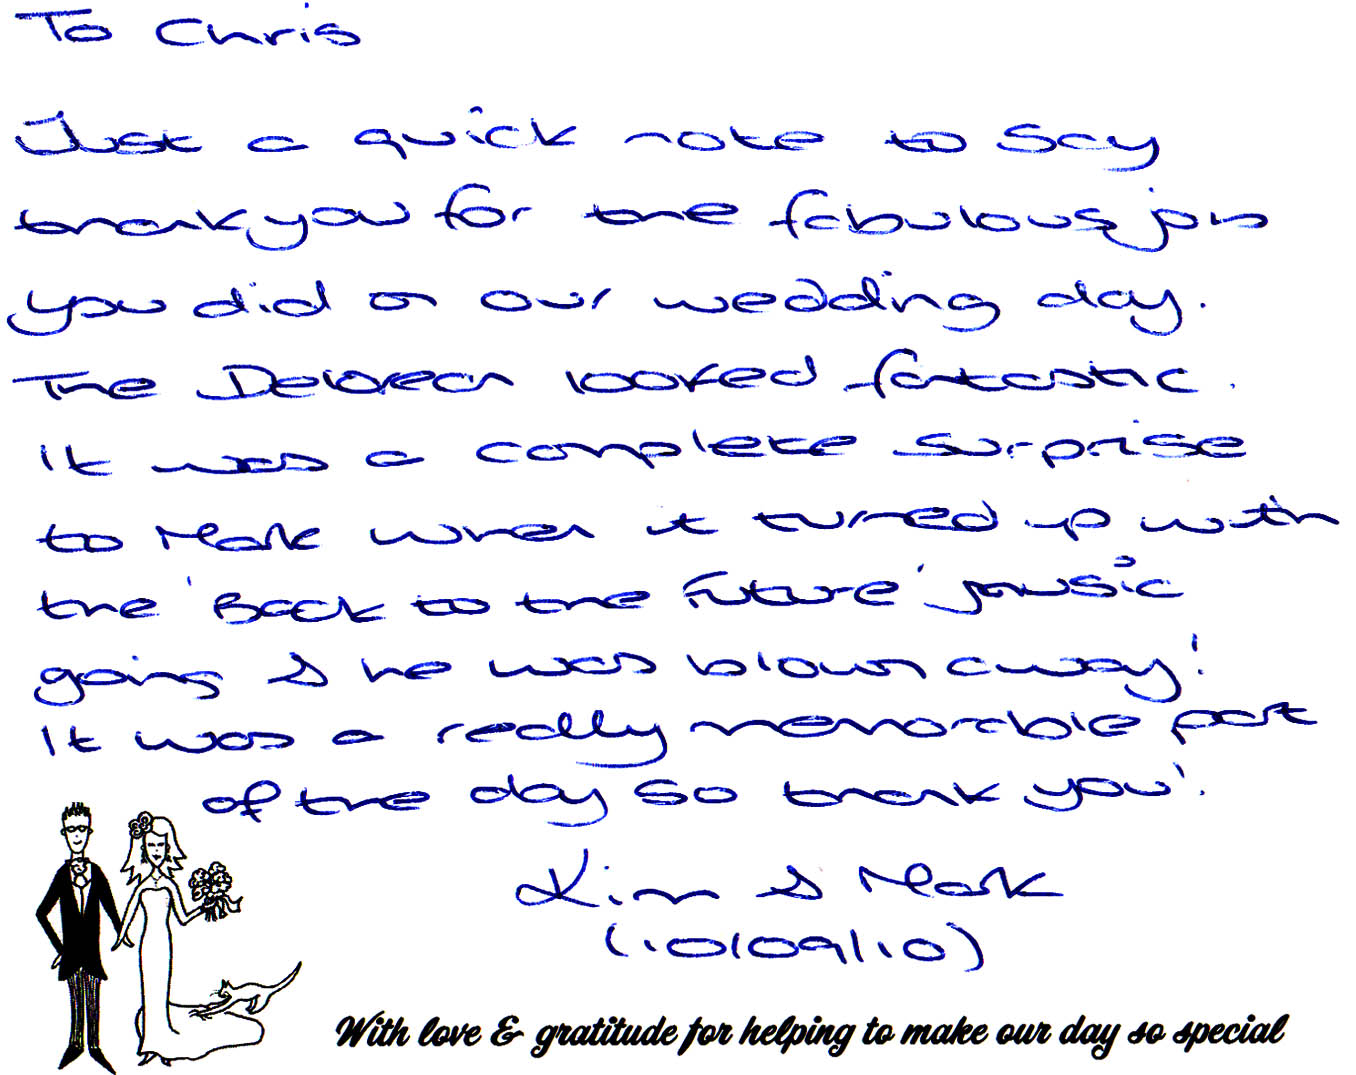 To Chris
Just a quick note to say
thankyou for the fabulous job
you did on our wedding day.
The Delorean looked fantastic.
It was a complete surprise
to Mark when it turned up with
the 'Back to the Future' music
going & he was blown away!
It was a really memorable part
of the day so thank you!
Kim & Mark
(10/09/10)
With love & gratitude for helping to make our day so special